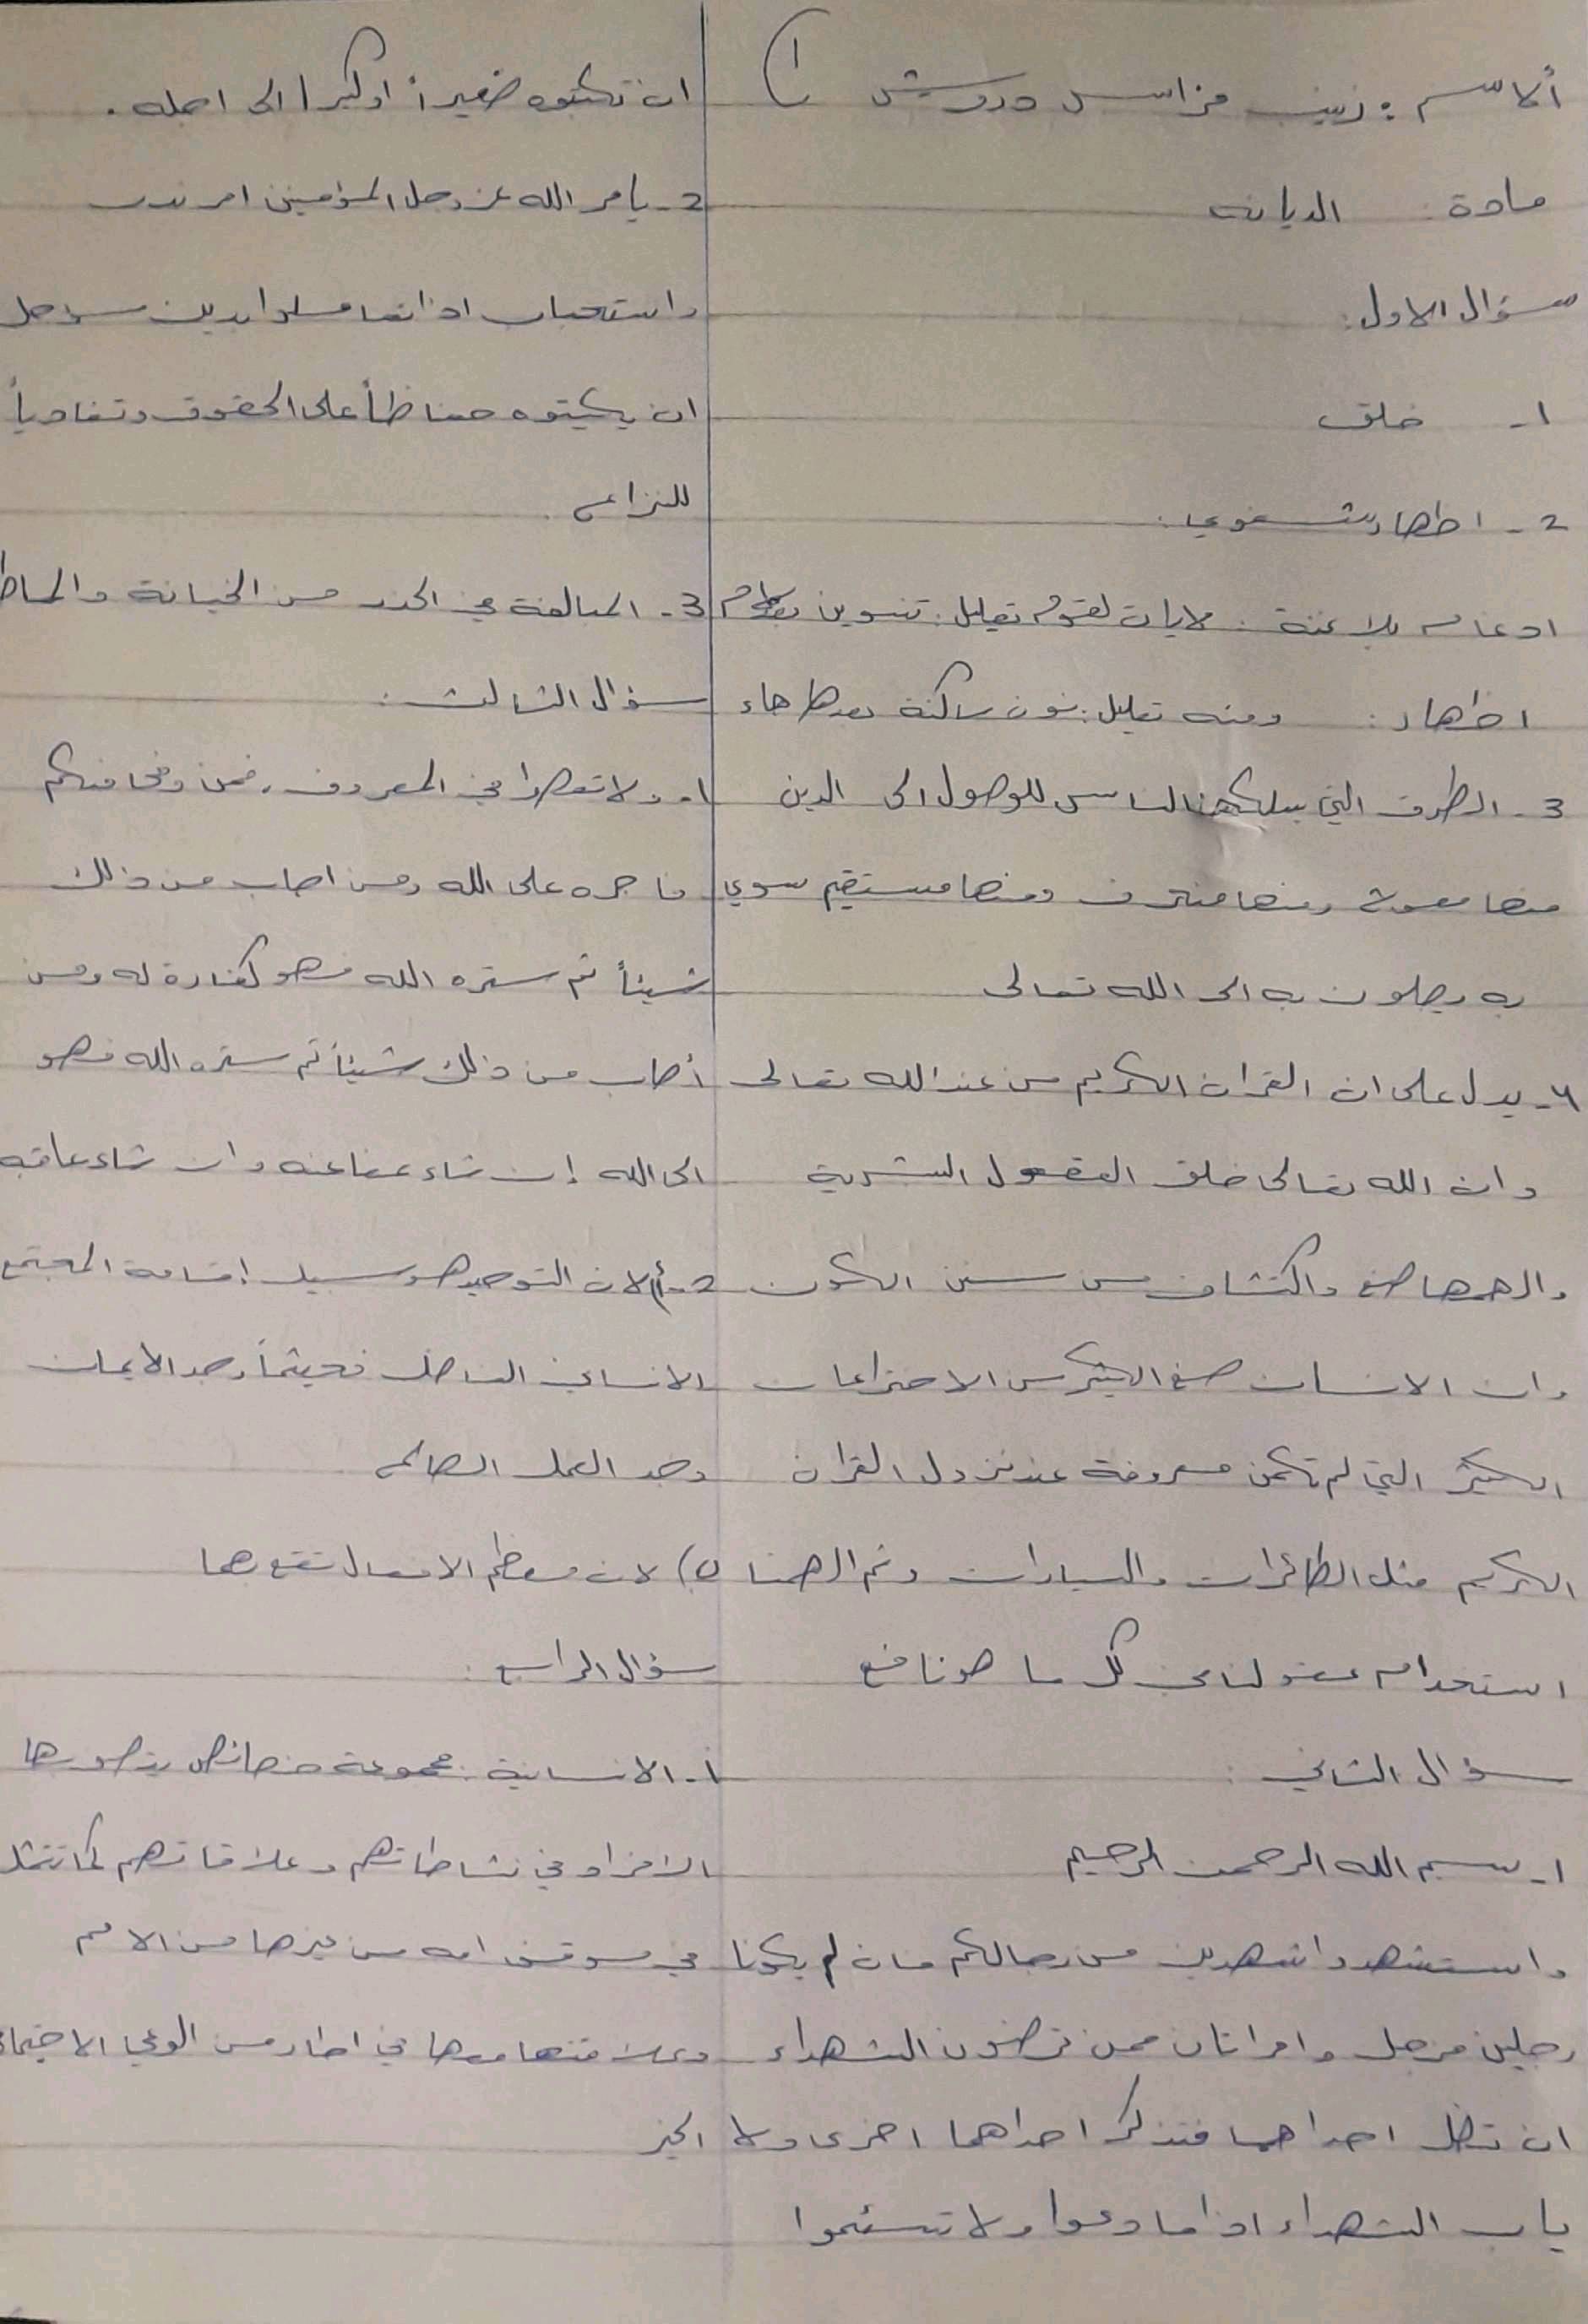 الاسم : زينب فراس درويش
١
مادة : الديانه
سؤال الاول :
١- خلق
2- اظهار شفوي :
ادغام بلا غنة : لايات لقوم تعليل : تنوين بعده
اظهار : ومنه تعليل : نون ساكنة بعدها هاء
3- الطرق التي يسلكها الناس للوصول الى الدين
منها معوج ومنها منحرف ومنها مستقيم سوي
به يصلون به الى الله تعالى
٤- يدل على ان القران الكريم من عند الله تعالى
وان الله تعالى خلق العقول البشرية
والهمها صنع واكتشاف من سنن الكون
وان الانسان صنع الكثير من الاختراعات
الكثير التي لم تكن معروفة عند نزول القران
الكريم مثل الطائرات والسيارات وتم الهمنا
استخدام عقولنا في كل ما هو نافع
سؤال الثاني :
١- بسم الله الرحمن الرحيم
واستشهدوا شهدين من رجالكم فان لم يكونا
رجلين فرجل وامراتان ممن ترضون الشهداء
ان تضل احداهما فتذكر احداهما اخرى ولا
ياب الشهداء اذا ما دعوا ولا تسئموا
ان تكتبوه صغيراً او كبيرا الى اجله .
2- يامر الله عز وجل المؤمنين امر ندب
واستحباب اذا تعاملوا بدين مؤجل
ان يكتبوه حفاظاً على الحقوق وتفادياً
للنزاع .
3- المبالغة في الحذر من الخيانة
سؤال الثالث :
١- ولا تعصوا في المعروف ، فمن وفى منكم
فاجره على الله ومن اصاب من ذلك
شيئاً ثم ستره الله فهو كفارة له ومن
أصاب من ذلك شيئاً ثم ستره الله فهو
الى الله إن شاء عفا عنه وان شاء عاقبه
2- أ) لان التوحيد هو سبيل اقامة المجتمع
الانساني الفاضل فحيثما وجد الايمان
وجد العمل الصالح
ب) لان معظم الافعال تقع بهما
سؤال الرابع :
١- الانسانية : مجموعة خصائص يتصورها
الافراد في نشاطاتهم وعلاقاتهم كما تتمثل
في موقف امه من غيرها من الامم
وعلاقتها معها في اطار من الوعي
الخير